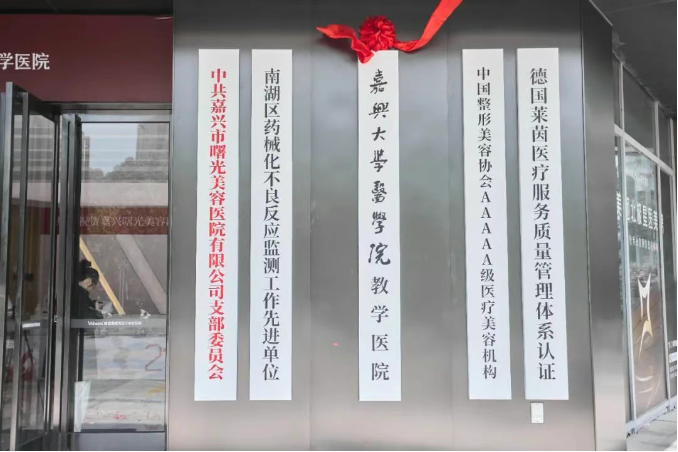 学医院
中共嘉兴市曙光美容医院有限公司支部委员会
南湖区药械化不良反应监测工作先进单位
嘉興大學醫學院教学医院
中国整形美容协会AAAAA级医疗美容机构
德国莱茵医疗服务质量管理体系认证
嘉兴曙光美容